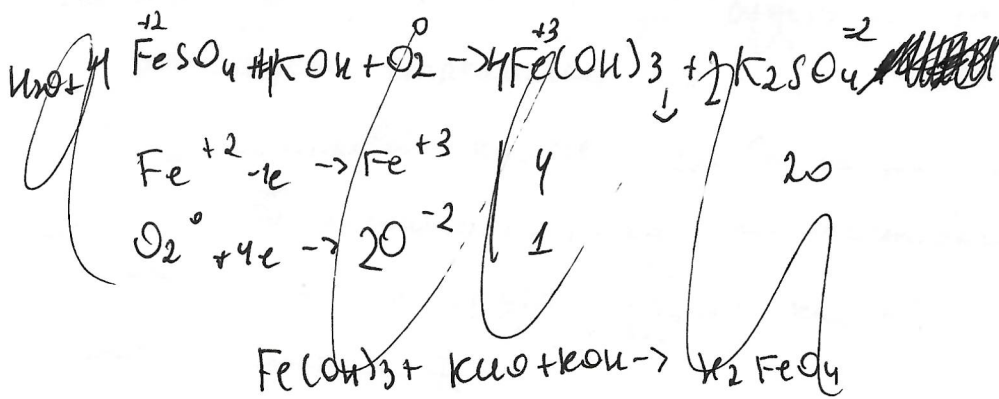 H2O + 4 FeSO4 + KOH + O2 -> 4Fe(OH)3 ↓ + 2K2SO4
Fe +2 -1e -> Fe +3 | 4 20
O2 0 +4e -> 2O -2 | 1
Fe(OH)3 + + KOH -> FeO4